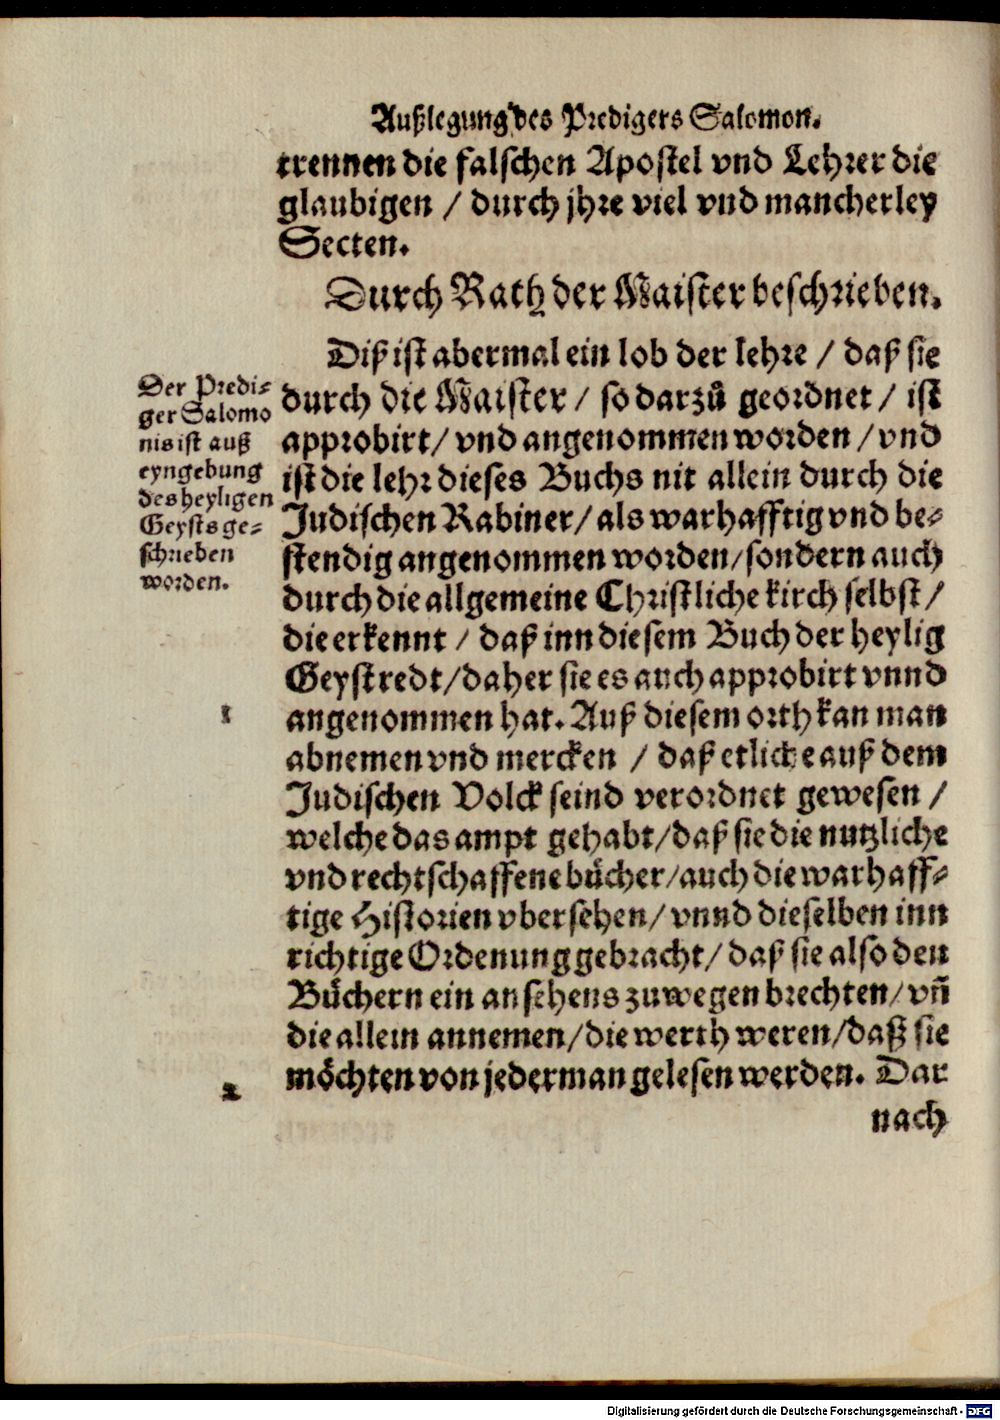 Außlegung des Predigers Salomon.
trennen die falschen Apostel vnd Lehrer die
glaubigen / durch jhre viel vnd mancherley
Secten.
Durch Rath der Maister beschrieben.
Diß ist abermal ein lob der lehre / daß sie
durch die Maister / so darzů geordnet / ist
approbirt / vnd angenommen worden / vnd
ist die lehr dieses Buchs nit allein durch die
Judischen Rabiner / als warhafftig vnd be-
stendig angenommen worden / sondern auch
durch die allgemeine Christliche kirch selbst /
die erkennt / daß inn diesem Buch der heylig
Geyst redt / daher sie es auch approbirt vnnd
angenommen hat. Auß diesem orth kan man
abnemen vnd mercken / daß etliche auß dem
Judischen Volck seind verordnet gewesen /
welche das ampt gehabt / daß sie die nutzliche
vnd rechtschaffene bůcher / auch die warhaff-
tige Historien vbersehen / vnnd dieselben inn
richtige Ordenung gebracht / daß sie also den
Bůchern ein ansehens zuwegen brechten / vñ
die allein annemen / die werth weren / daß sie
möchten von jederman gelesen werden. Dar
nach
Der Predi-
ger Salomo
nis ist auß
eyngebung
des heyligen
Geysts ge-
schrieben
worden.
1
2
Digitalisierung gefördert durch die Deutsche Forschungsgemeinschaft - DFG